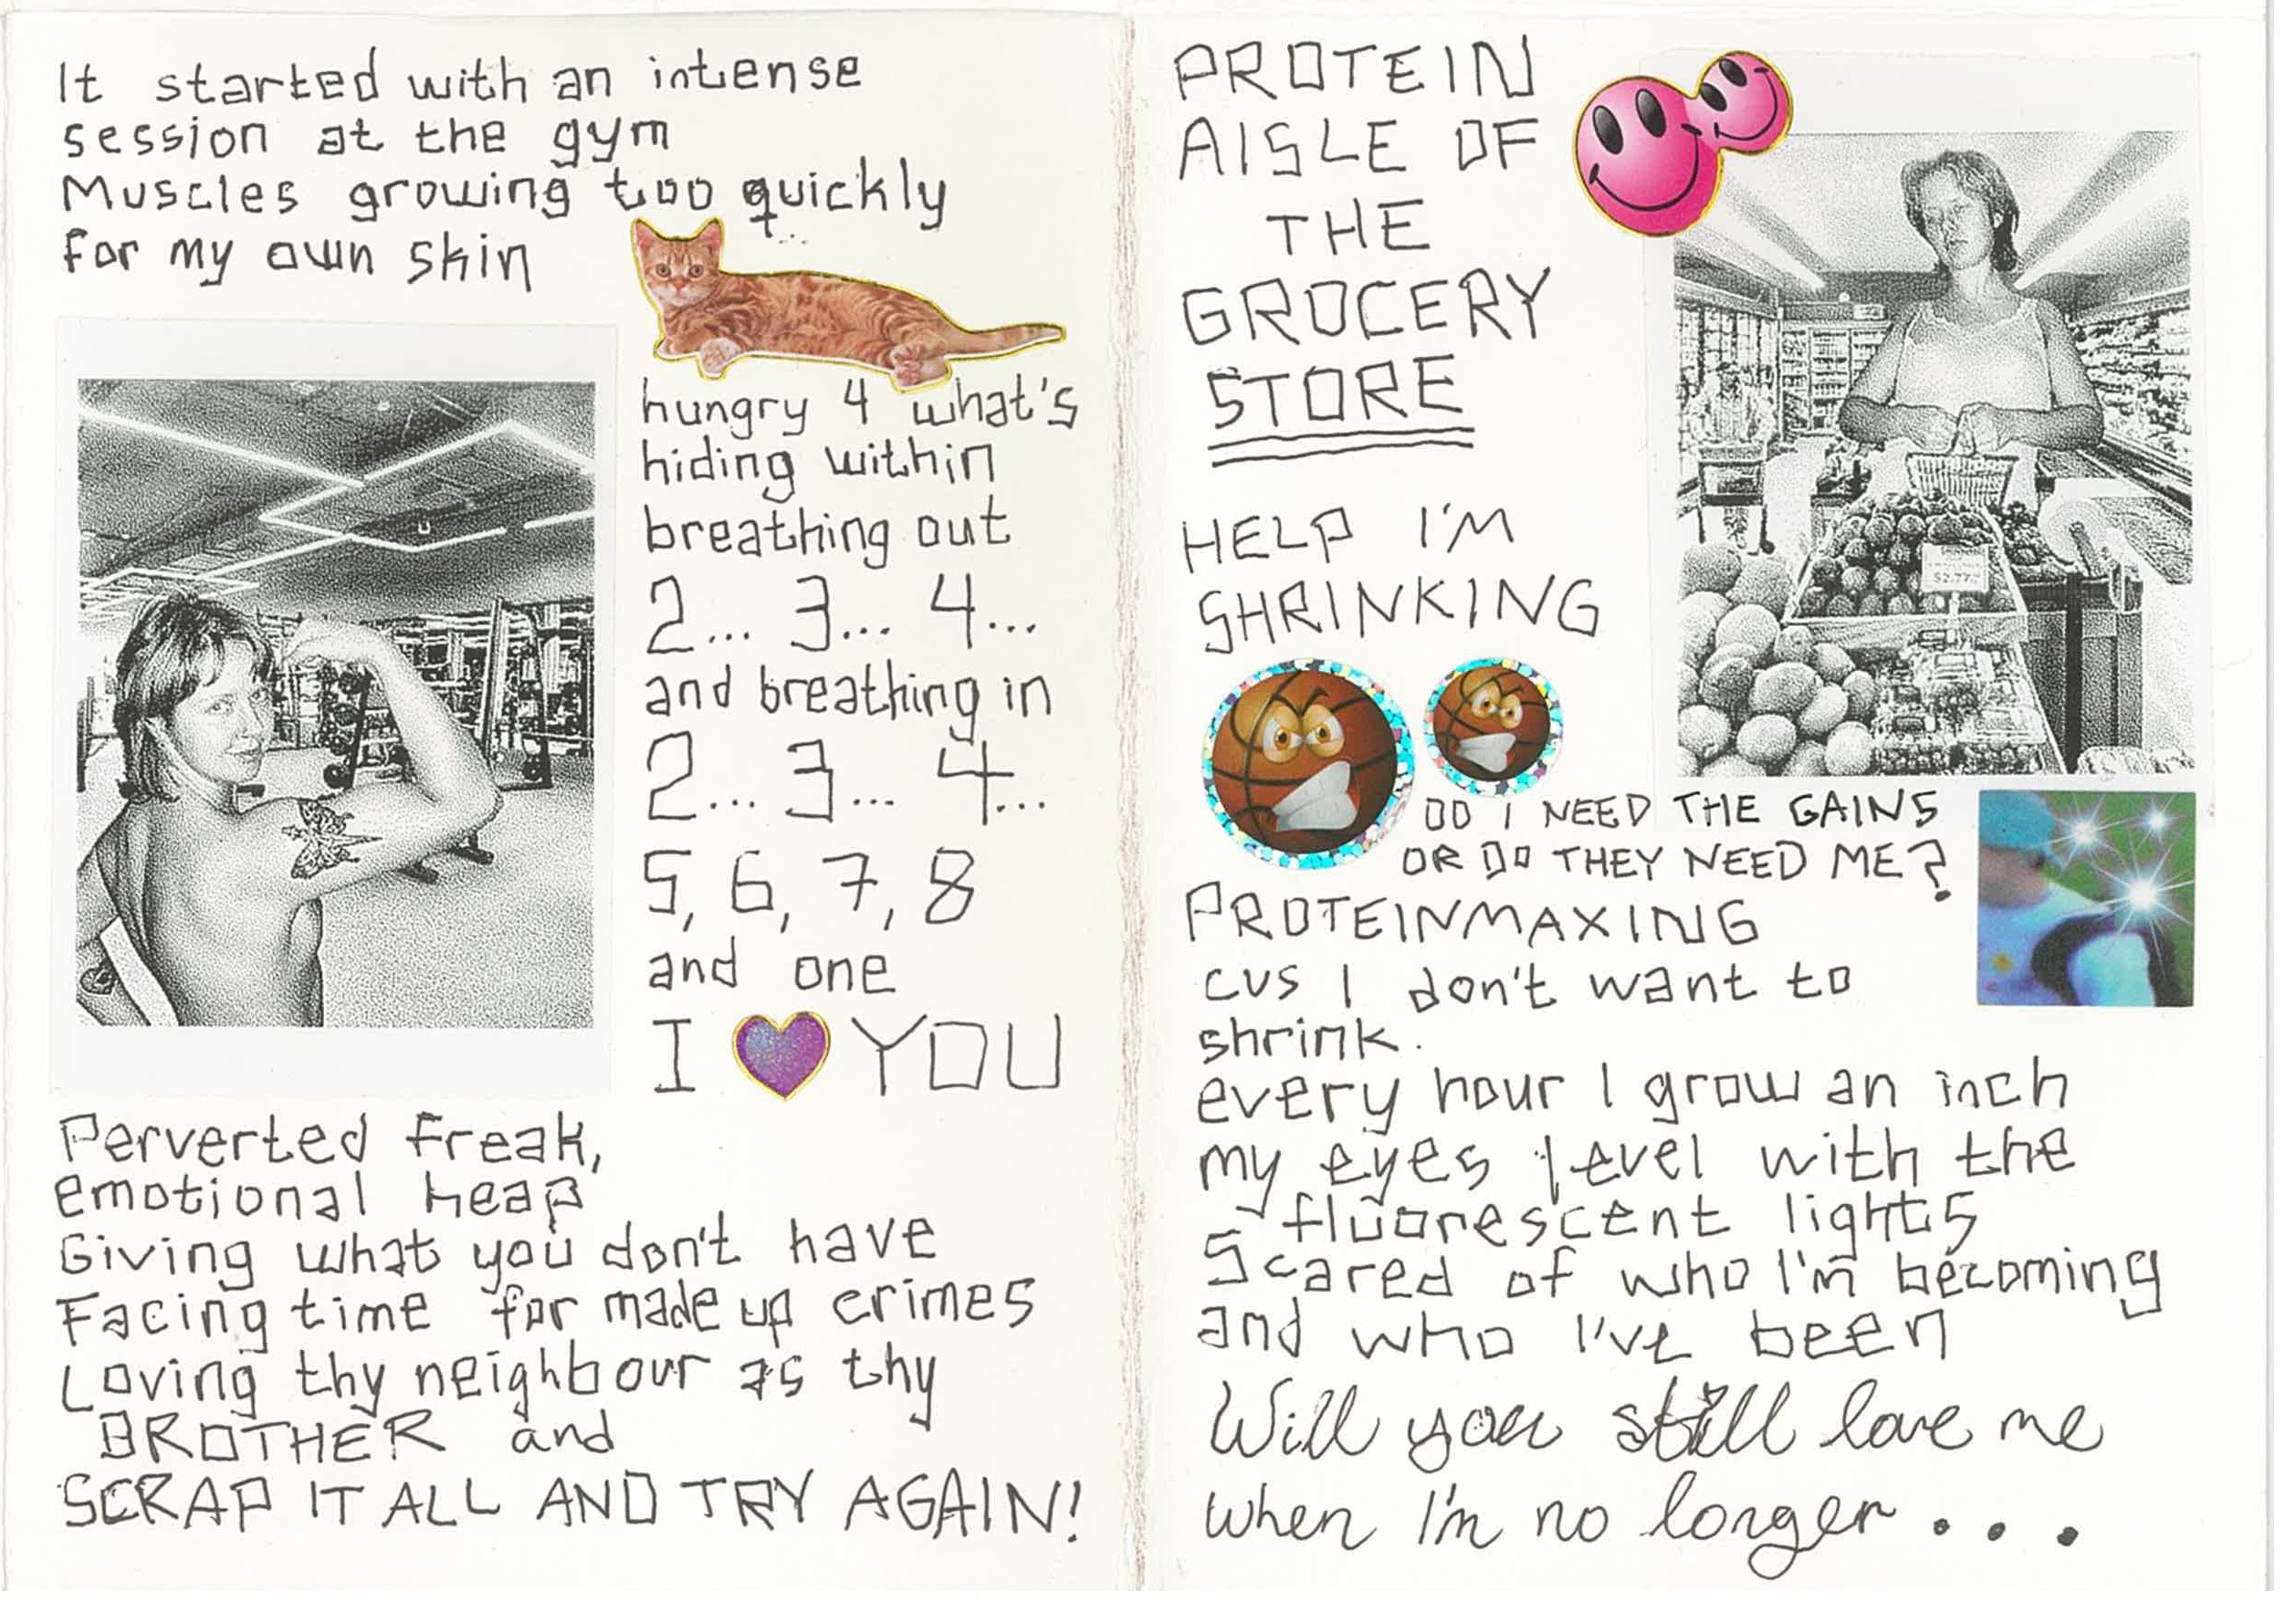 It started with an intense
session at the gym
Muscles growing too quickly
for my own skin
hungry 4 what's
hiding within
breathing out
2... 3... 4...
and breathing in
2... 3... 4...
5, 6, 7, 8
and one
I YOU
Perverted freak,
emotional heap
Giving what you don't have
Facing time for made up crimes
Loving thy neighbour as thy
BROTHER and
SCRAP IT ALL AND TRY AGAIN!
PROTEIN
AISLE OF
THE
GROCERY
STORE
HELP I'M
SHRINKING
$2.77
DO I NEED THE GAINS
OR DO THEY NEED ME?
PROTEINMAXING
cus I don't want to
shrink.
every hour I grow an inch
my eyes level with the
fluorescent lights
Scared of who I'm becoming
and who I've been
Will you still love me
when I'm no longer...